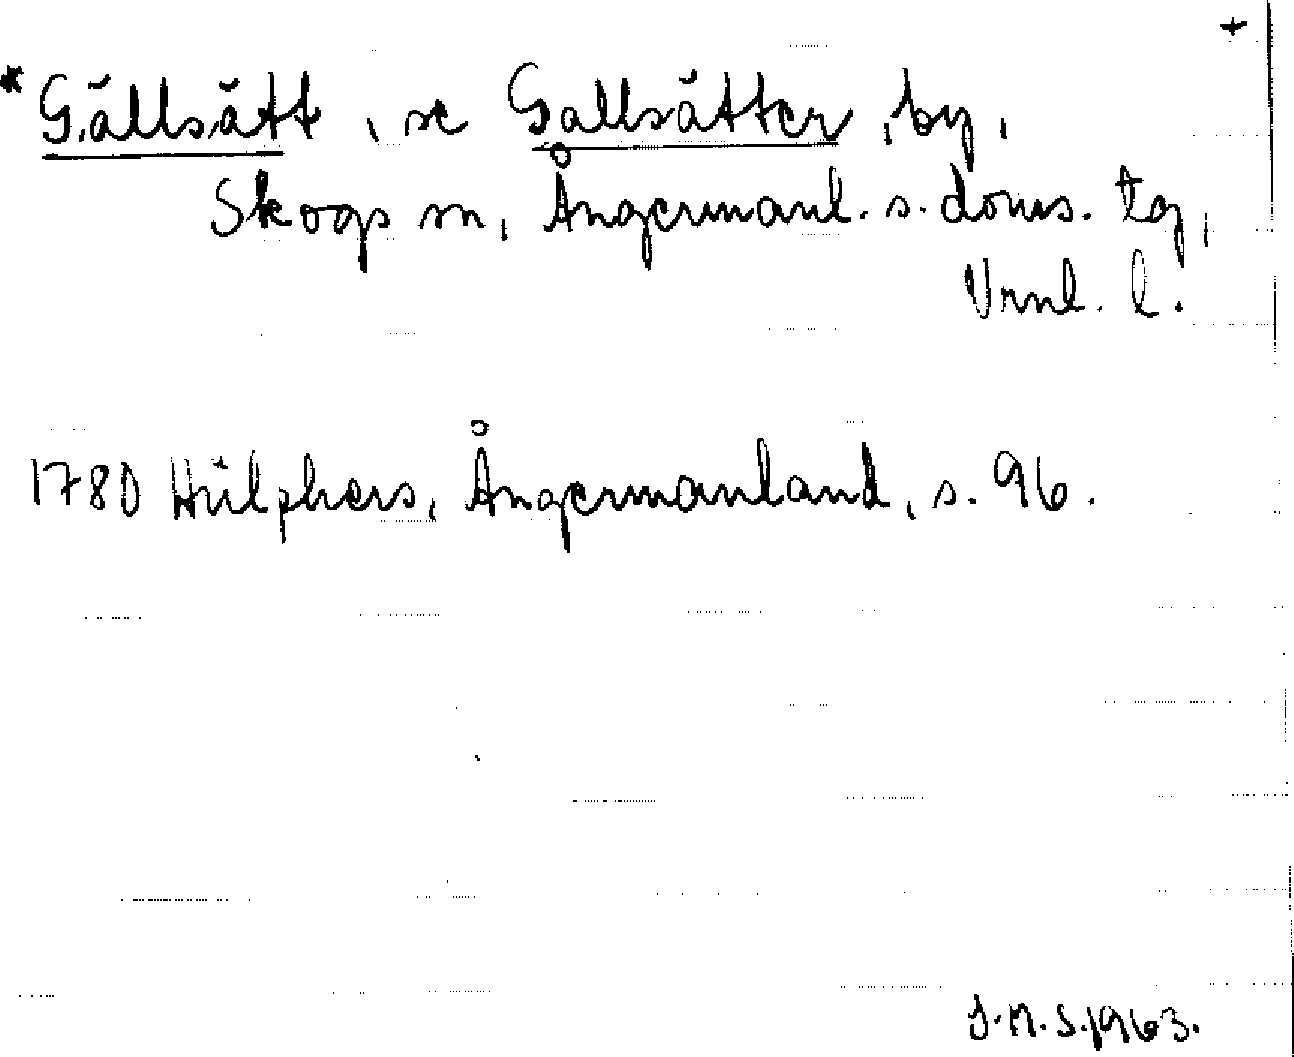 +
*Gällsätt, se Gallsätter, by,
Skogs sn, Ångermanl. s. doms. tg,
Vrnl. l.
1780 Hülphers, Ångermanland, s. 96.
J.M.S. 1963.